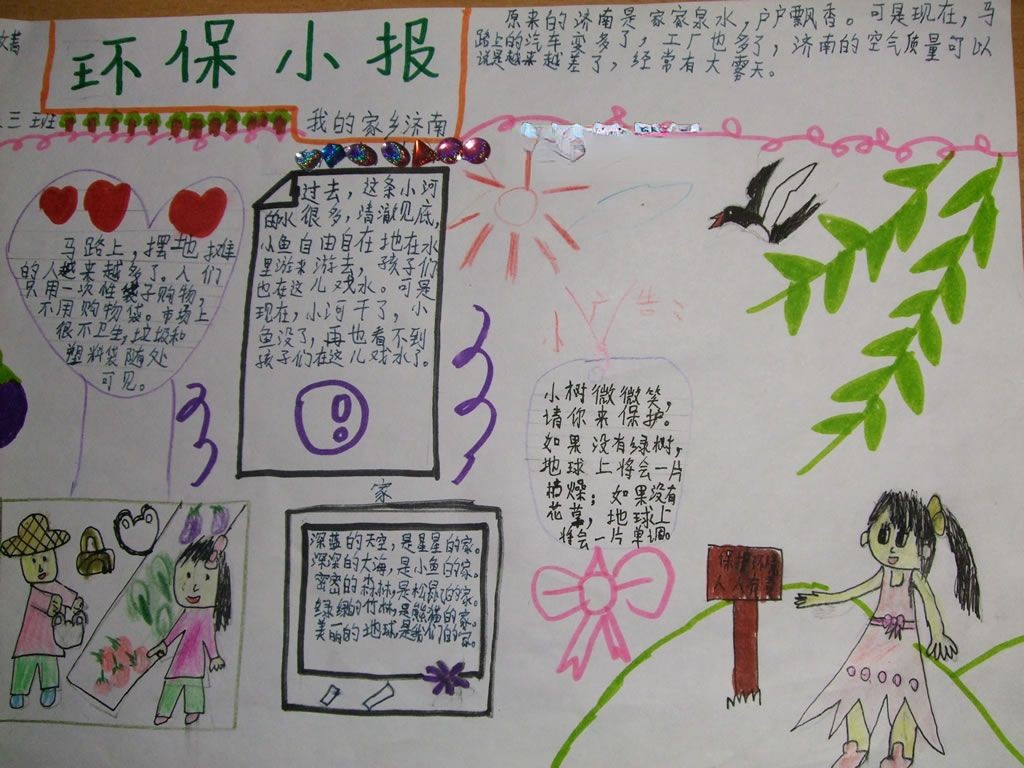 环保小报
三班
我的家乡济南
原来的济南是家家泉水，户户飘香。可是现在，马
路上的汽车变多了，工厂也多了，济南的空气质量可以
说是越来越差了，经常有大雾天。
马路上，摆地摊
的人越来越多了。人们
只用一次性袋子购物，
不用购物袋。市场上
很不卫生，垃圾和
塑料袋随处
可见。
过去，这条小河
的水很多，清澈见底，
小鱼自由自在地在水
里游来游去，孩子们
也在这儿戏水。可是
现在，小河干了，小
鱼没了，再也看不到
孩子们在这儿戏水了。
小广告
小树微微笑，
请你来保护。
如果没有绿树，
地球上将会一片
枯燥；如果没有
花草，地球上
将会一片单调。
家
深蓝的天空，是星星的家。
深深的大海，是小鱼的家。
密密的森林，是松鼠的家。
绿绿的竹林，是熊猫的家。
美丽的地球，是我们的家。
保护环境
人人有责